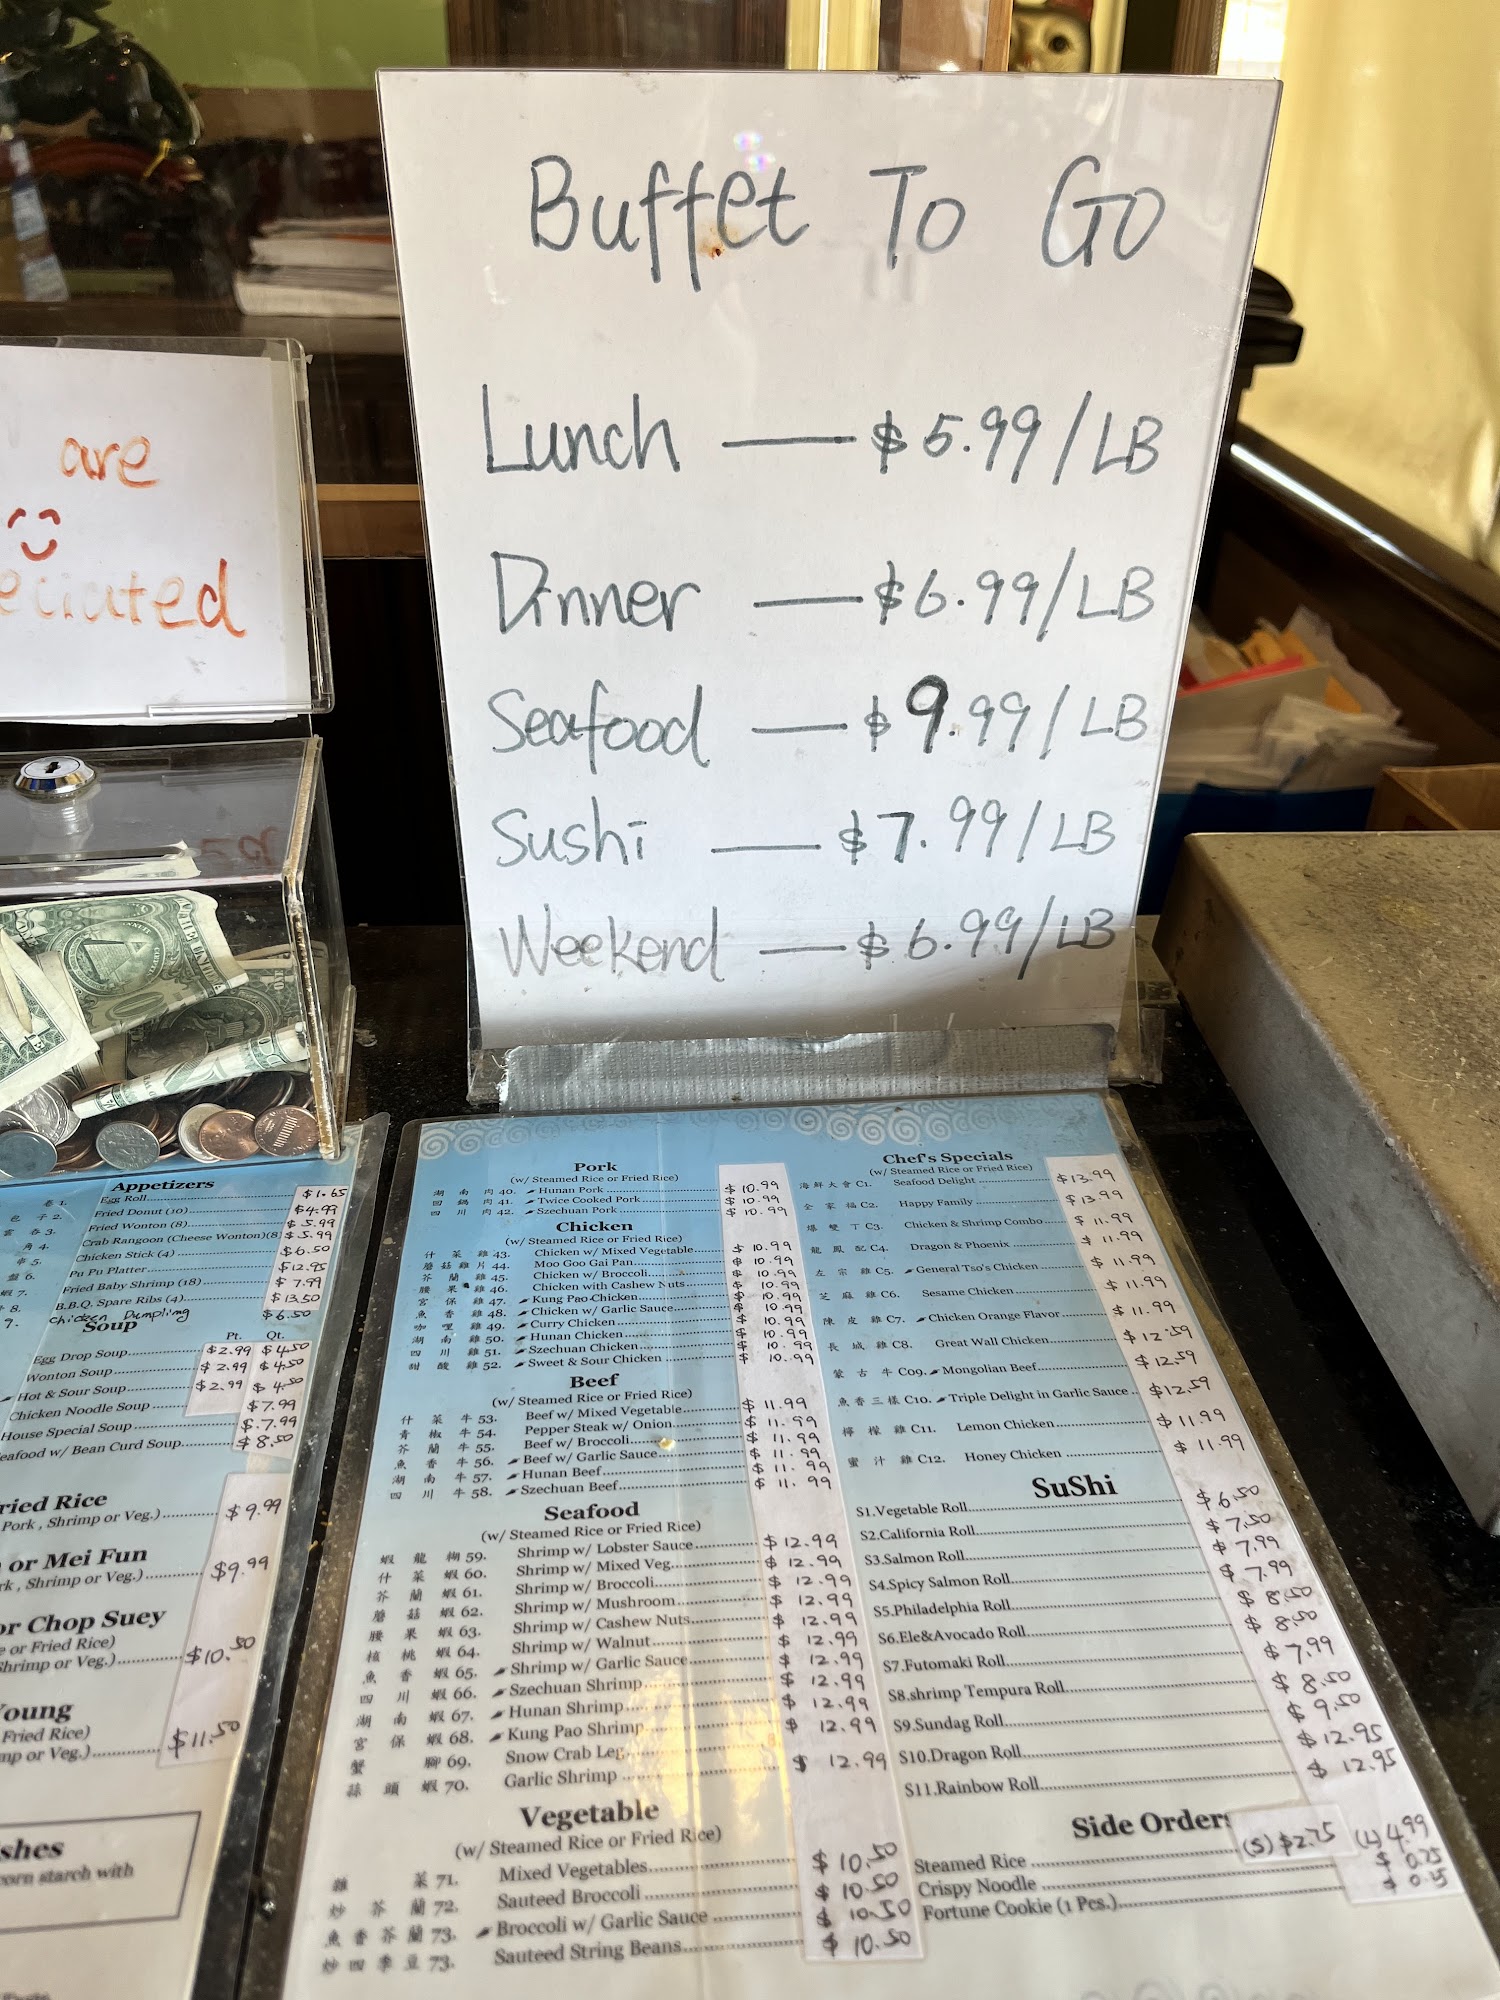 Buffet To Go
Lunch — $5.99/LB
Dinner — $6.99/LB
Seafood — $9.99/LB
Sushi — $7.99/LB
Weekend — $6.99/LB
are
eciated
Appetizers
卷 1. Egg Roll $1.65
2. Fried Donut (10) $4.99
3. Fried Wonton (8) $5.99
角 4. Crab Rangoon (Cheese Wonton)(8) $5.99
串 5. Chicken Stick (4) $6.50
盤 6. Pu Pu Platter $12.95
蝦 7. Fried Baby Shrimp (18) $7.99
8. B.B.Q. Spare Ribs (4) $13.50
9. Chicken Dumpling $6.50
Soup
Pt. Qt.
Egg Drop Soup $2.99 $4.50
Wonton Soup $2.99 $4.50
Hot & Sour Soup $2.99 $4.50
Chicken Noodle Soup $7.99
House Special Soup $7.99
eafood w/ Bean Curd Soup $8.50
ried Rice
Pork, Shrimp or Veg.) $9.99
or Mei Fun
rk, Shrimp or Veg.) $9.99
or Chop Suey
e or Fried Rice)
Shrimp or Veg.) $10.50
Young
Fried Rice)
mp or Veg.) $11.50
shes
corn starch with
Pork
(w/ Steamed Rice or Fried Rice)
湖南肉 40. Hunan Pork $10.99
四鍋肉 41. Twice Cooked Pork $10.99
四川肉 42. Szechuan Pork $10.99
Chicken
(w/ Steamed Rice or Fried Rice)
什菜雞 43. Chicken w/ Mixed Vegetable $10.99
蘑菇雞片 44. Moo Goo Gai Pan $10.99
芥蘭雞 45. Chicken w/ Broccoli $10.99
腰果雞 46. Chicken with Cashew Nuts $10.99
宮保雞 47. Kung Pao Chicken $10.99
魚香雞 48. Chicken w/ Garlic Sauce $10.99
咖哩雞 49. Curry Chicken $10.99
湖南雞 50. Hunan Chicken $10.99
四川雞 51. Szechuan Chicken $10.99
甜酸雞 52. Sweet & Sour Chicken $10.99
Beef
(w/ Steamed Rice or Fried Rice)
什菜牛 53. Beef w/ Mixed Vegetable $11.99
青椒牛 54. Pepper Steak w/ Onion $11.99
芥蘭牛 55. Beef w/ Broccoli $11.99
魚香牛 56. Beef w/ Garlic Sauce $11.99
湖南牛 57. Hunan Beef $11.99
四川牛 58. Szechuan Beef $11.99
Seafood
(w/ Steamed Rice or Fried Rice)
蝦龍糊 59. Shrimp w/ Lobster Sauce $12.99
什菜蝦 60. Shrimp w/ Mixed Veg. $12.99
芥蘭蝦 61. Shrimp w/ Broccoli $12.99
蘑菇蝦 62. Shrimp w/ Mushroom $12.99
腰果蝦 63. Shrimp w/ Cashew Nuts $12.99
核桃蝦 64. Shrimp w/ Walnut $12.99
魚香蝦 65. Shrimp w/ Garlic Sauce $12.99
四川蝦 66. Szechuan Shrimp $12.99
湖南蝦 67. Hunan Shrimp $12.99
宮保蝦 68. Kung Pao Shrimp $12.99
蟹腳 69. Snow Crab Leg
蒜頭蝦 70. Garlic Shrimp $12.99
Vegetable
(w/ Steamed Rice or Fried Rice)
雜菜 71. Mixed Vegetables $10.50
炒芥蘭 72. Sauteed Broccoli $10.50
魚香芥蘭 73. Broccoli w/ Garlic Sauce $10.50
炒四季豆 73. Sauteed String Beans $10.50
Chef's Specials
(w/ Steamed Rice or Fried Rice)
海鮮大會 C1. Seafood Delight $13.99
全家福 C2. Happy Family $13.99
爆雙丁 C3. Chicken & Shrimp Combo $11.99
龍鳳配 C4. Dragon & Phoenix $11.99
左宗雞 C5. General Tso's Chicken $11.99
芝麻雞 C6. Sesame Chicken $11.99
陳皮雞 C7. Chicken Orange Flavor $11.99
長城雞 C8. Great Wall Chicken $12.59
蒙古牛 C09. Mongolian Beef $12.59
魚香三樣 C10. Triple Delight in Garlic Sauce $12.59
檸檬雞 C11. Lemon Chicken $11.99
蜜汁雞 C12. Honey Chicken $11.99
SuShi
S1.Vegetable Roll $6.50
S2.California Roll $7.50
S3.Salmon Roll $7.99
S4.Spicy Salmon Roll $7.99
S5.Philadelphia Roll $8.50
S6.Ele&Avocado Roll $8.50
S7.Futomaki Roll $7.99
S8.shrimp Tempura Roll $8.50
S9.Sundag Roll $9.50
S10.Dragon Roll $12.95
S11.Rainbow Roll $12.95
Side Orders
Steamed Rice (S) $2.75 (L) 4.99
Crispy Noodle $0.75
Fortune Cookie (1 Pcs.)